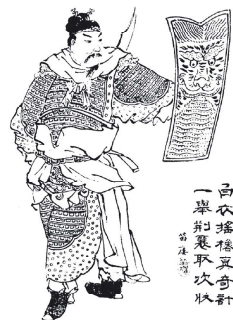 白衣搖櫓真奇計
一舉荊襄取次收